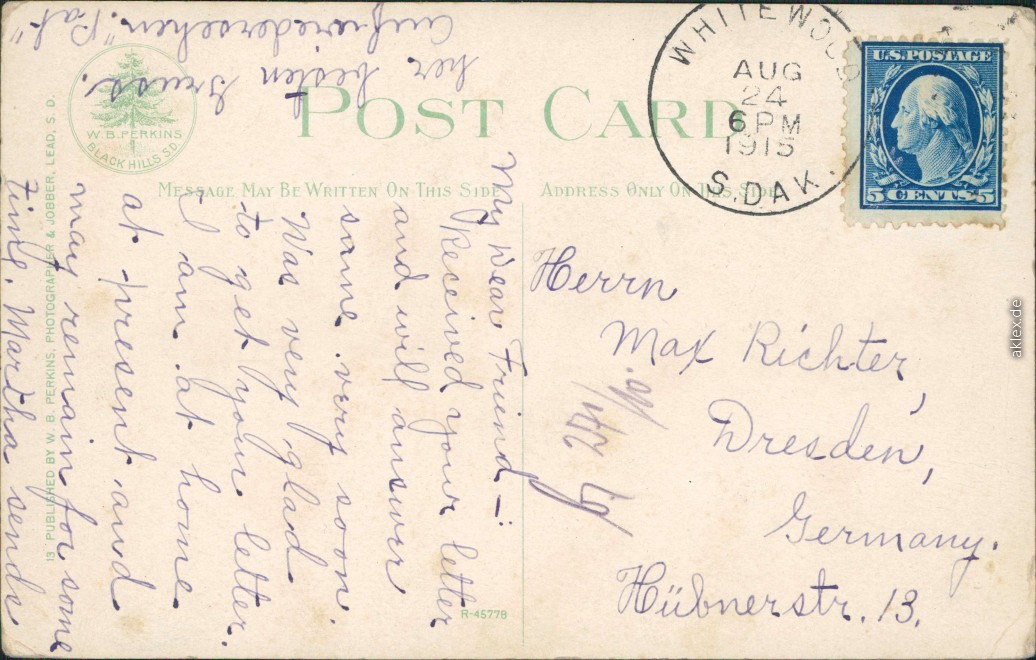 POST CARD
MESSAGE MAY BE WRITTEN ON THIS SIDE
ADDRESS ONLY ON THIS SIDE
W. B. PERKINS
BLACK HILLS S.D.
13 PUBLISHED BY W. B. PERKINS, PHOTOGRAPHER & JOBBER, LEAD, S. D.
R-45778
WHITEWOOD
AUG
24
6 PM
1915
S. DAK.
U.S. POSTAGE
5 CENTS 5
My Dear Friend —:
Received your letter
and will answer
same very soon.
Was very glad
to get your letter.
I am at home
at present and
may remain for some
time. Martha sends
her besten Gruss.
Aufwiedersehen "Pat"
Herrn
Max Richter,
Dresden,
Germany.
Hübnerstr. 13.
aklex.de